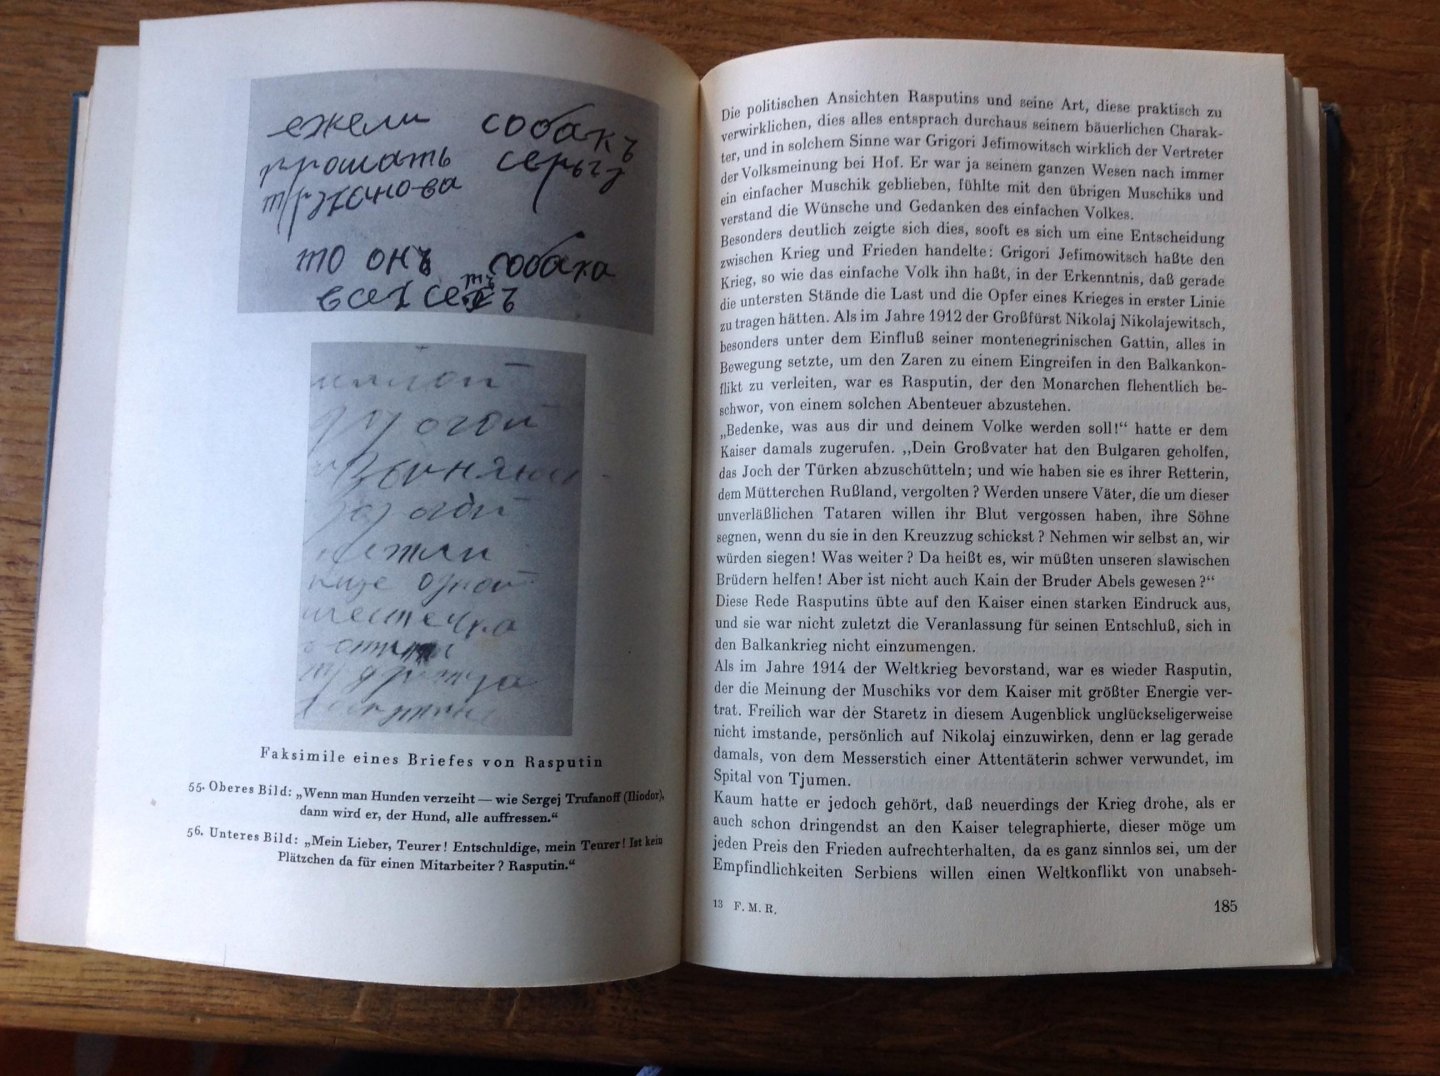 ежели собакъ
прошать серьгу
труханова
то онъ собака
всех сестъ
милой
дорогой
дорогой
нетли
кже одной
местечка
Faksimile eines Briefes von Rasputin
55. Oberes Bild: „Wenn man Hunden verzeiht — wie Sergej Trufanoff (Iliodor),
dann wird er, der Hund, alle auffressen.“
56. Unteres Bild: „Mein Lieber, Teurer! Entschuldige, mein Teurer! Ist kein
Plätzchen da für einen Mitarbeiter? Rasputin.“
Die politischen Ansichten Rasputins und seine Art, diese praktisch zu
verwirklichen, dies alles entsprach durchaus seinem bäuerlichen Charak-
ter, und in solchem Sinne war Grigori Jefimowitsch wirklich der Vertreter
der Volksmeinung bei Hof. Er war ja seinem ganzen Wesen nach immer
ein einfacher Muschik geblieben, fühlte mit den übrigen Muschiks und
verstand die Wünsche und Gedanken des einfachen Volkes.
Besonders deutlich zeigte sich dies, sooft es sich um eine Entscheidung
zwischen Krieg und Frieden handelte: Grigori Jefimowitsch haßte den
Krieg, so wie das einfache Volk ihn haßt, in der Erkenntnis, daß gerade
die untersten Stände die Last und die Opfer eines Krieges in erster Linie
zu tragen hätten. Als im Jahre 1912 der Großfürst Nikolaj Nikolajewitsch,
besonders unter dem Einfluß seiner montenegrinischen Gattin, alles in
Bewegung setzte, um den Zaren zu einem Eingreifen in den Balkankon-
flikt zu verleiten, war es Rasputin, der den Monarchen flehentlich be-
schwor, von einem solchen Abenteuer abzustehen.
„Bedenke, was aus dir und deinem Volke werden soll!“ hatte er dem
Kaiser damals zugerufen. „Dein Großvater hat den Bulgaren geholfen,
das Joch der Türken abzuschütteln; und wie haben sie es ihrer Retterin,
dem Mütterchen Rußland, vergolten? Werden unsere Väter, die um dieser
unverläßlichen Tataren willen ihr Blut vergossen haben, ihre Söhne
segnen, wenn du sie in den Kreuzzug schickst? Nehmen wir selbst an, wir
würden siegen! Was weiter? Da heißt es, wir müßten unseren slawischen
Brüdern helfen! Aber ist nicht auch Kain der Bruder Abels gewesen?“
Diese Rede Rasputins übte auf den Kaiser einen starken Eindruck aus,
und sie war nicht zuletzt die Veranlassung für seinen Entschluß, sich in
den Balkankrieg nicht einzumengen.
Als im Jahre 1914 der Weltkrieg bevorstand, war es wieder Rasputin,
der die Meinung der Muschiks vor dem Kaiser mit größter Energie ver-
trat. Freilich war der Staretz in diesem Augenblick unglückseligerweise
nicht imstande, persönlich auf Nikolaj einzuwirken, denn er lag gerade
damals, von dem Messerstich einer Attentäterin schwer verwundet, im
Spital von Tjumen.
Kaum hatte er jedoch gehört, daß neuerdings der Krieg drohe, als er
auch schon dringendst an den Kaiser telegraphierte, dieser möge um
jeden Preis den Frieden aufrechterhalten, da es ganz sinnlos sei, um der
Empfindlichkeiten Serbiens willen einen Weltkonflikt von unabseh-
13 F. M. R.
185